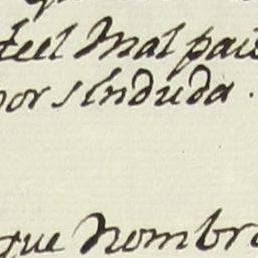 teel Mal pais
por sinduda .
que nombra